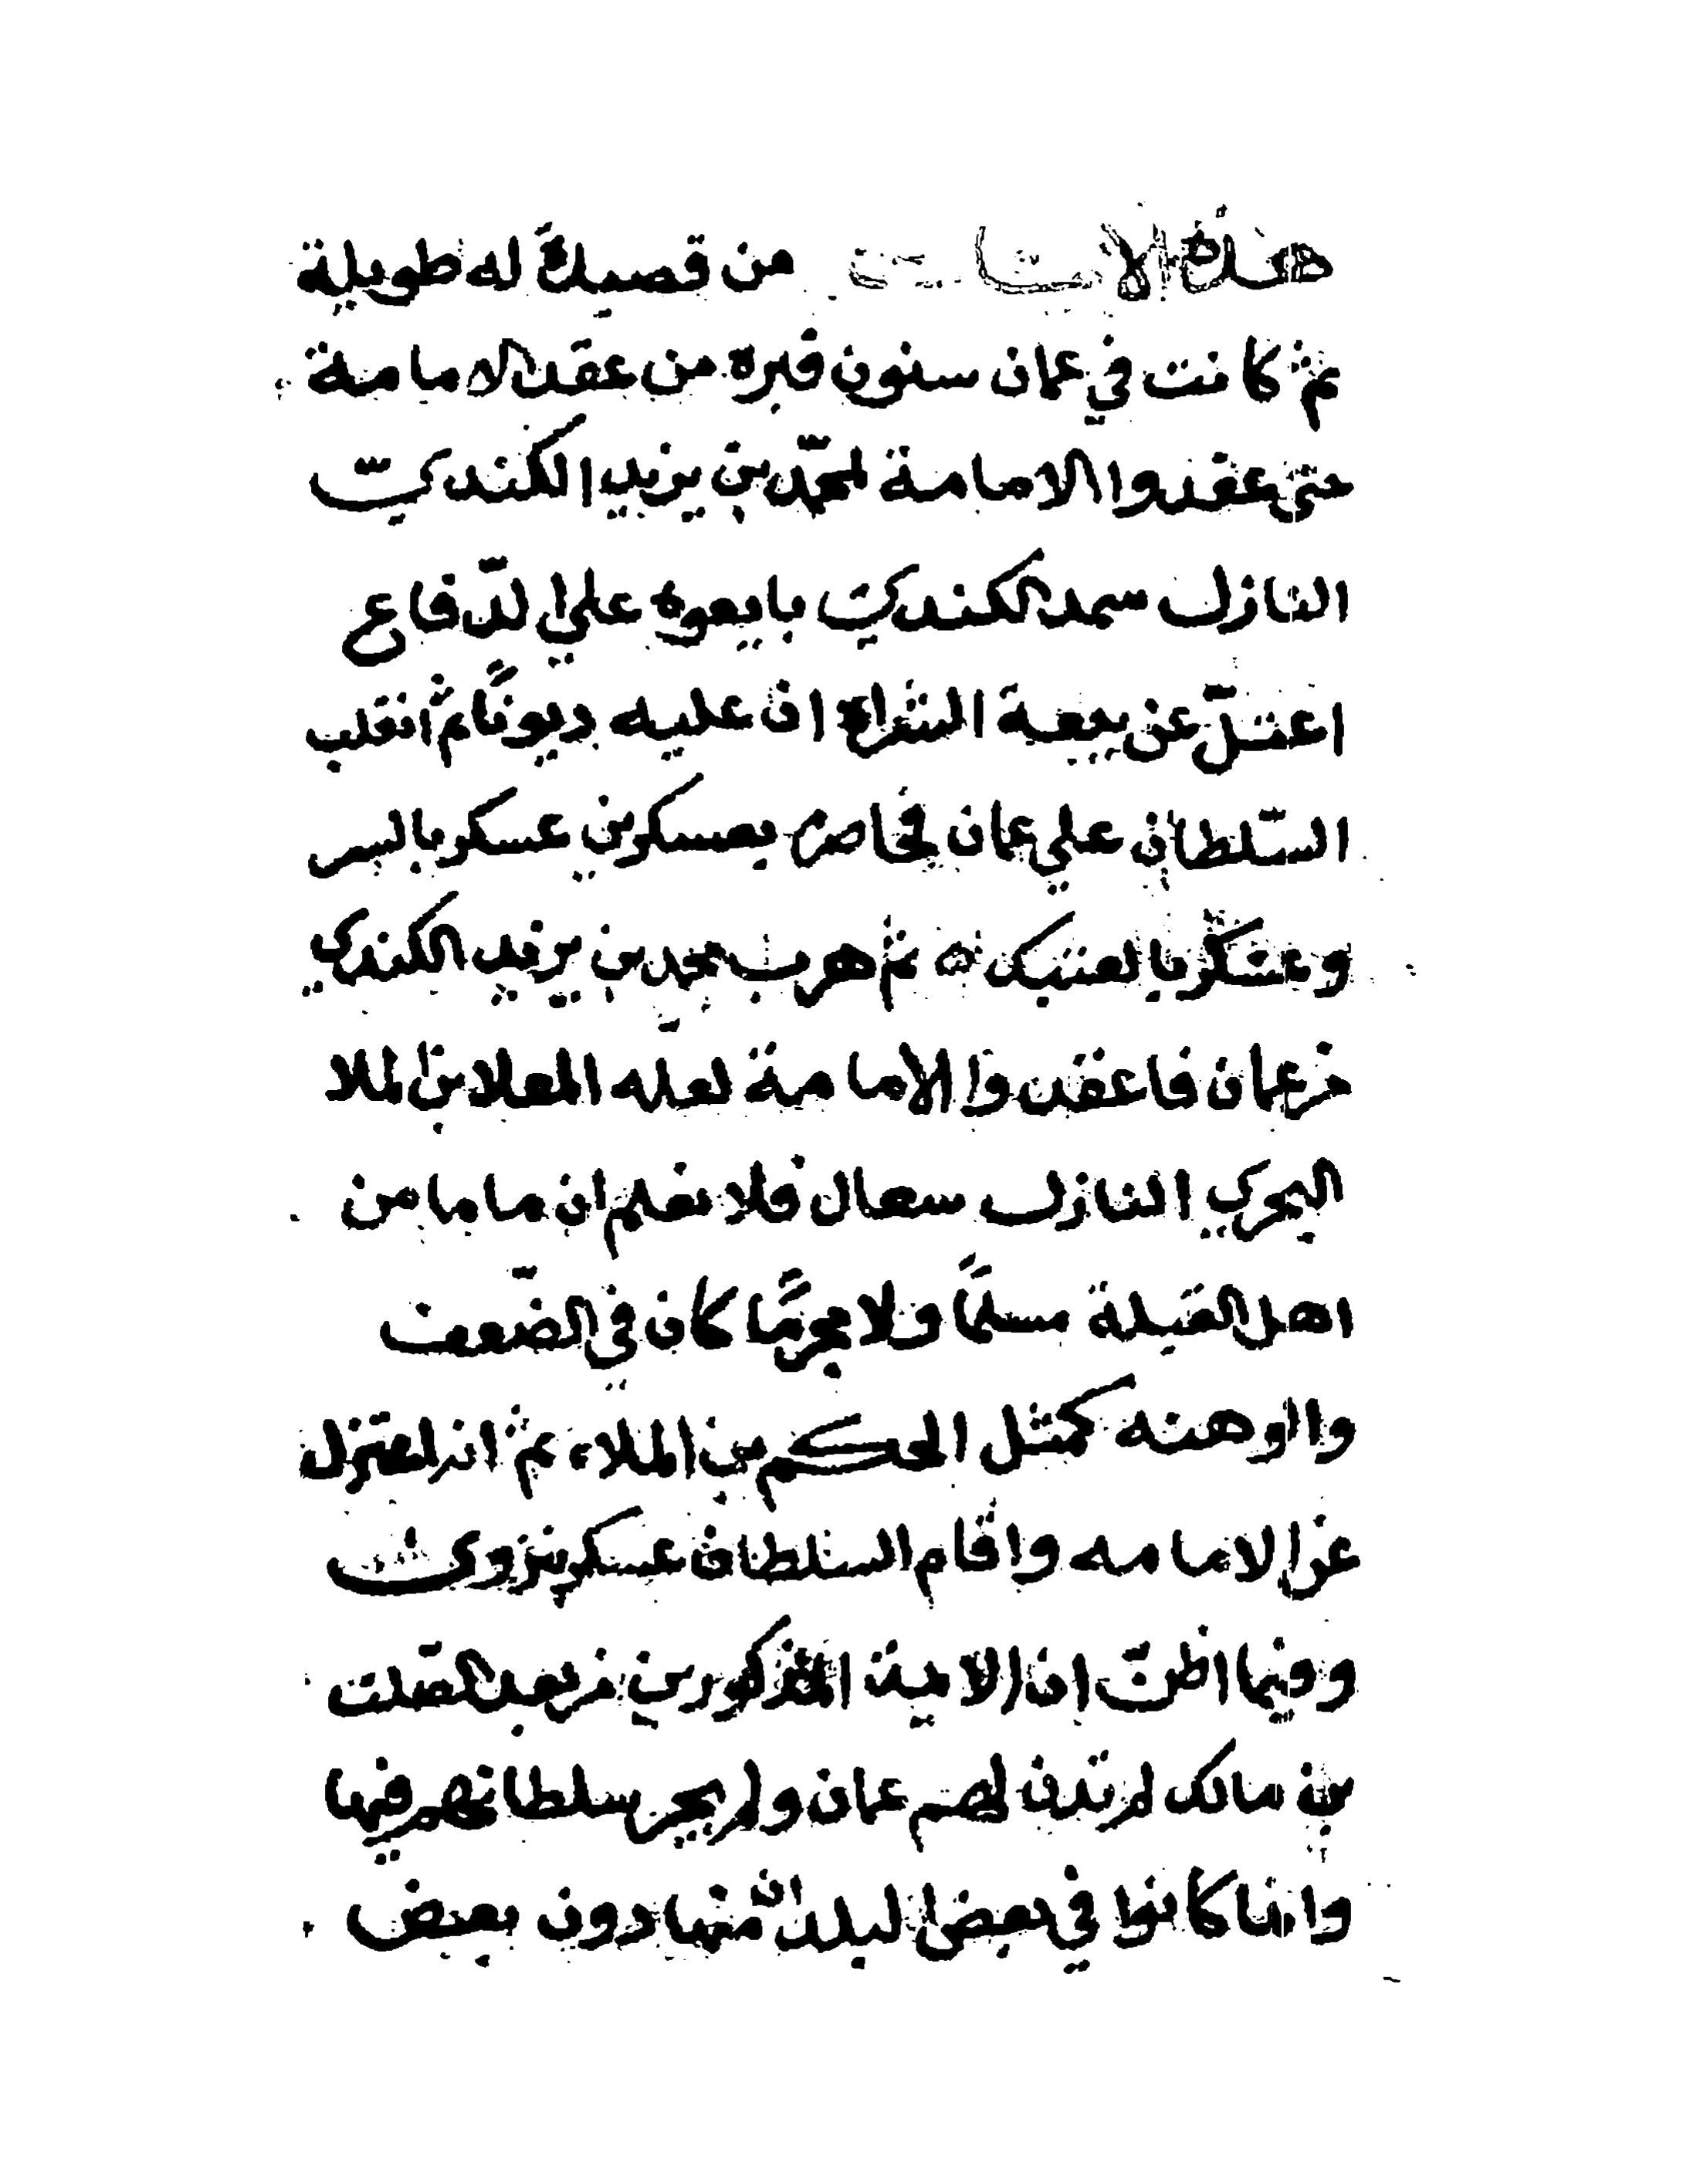 هذه الابيات من قصيدة له طويلة
ثم كانت في عمان سنون فترة من عقد الامامة
حتى عقدوا الامامة لمحمّد بن يزيد الكندي
النازل سمد الكندي بايعوه علي الدّفاع
اعتلّ عن بيعة الشراة ان عليه ديونًا ثم انقلب
السّلطان علي عمان بعسكر بن عسكر بالسر
وعسكر بالعتيك ثم هرب محمّد بن يزيد الكندي
من عمان فاعقدوا الامامة لعله المعلا بن الملا
البحري النازل سعال فلا نعلم ان ماما من
اهل القبلة مسلمًا ولا مجرمًا كان في الضّعف
والوهنه كمثل الحكم بن الملاء ثم انه اعتزل
عن الامامه واقام السلطان عسكر بنزوى
وفيما اظنّ ان الامية المذكورين من بعد الصّلت
بن مالك لم تدن لهم عمان ولم يجر سلطانهم فيها
وانما كانوا في بعض البلدان دون بعض